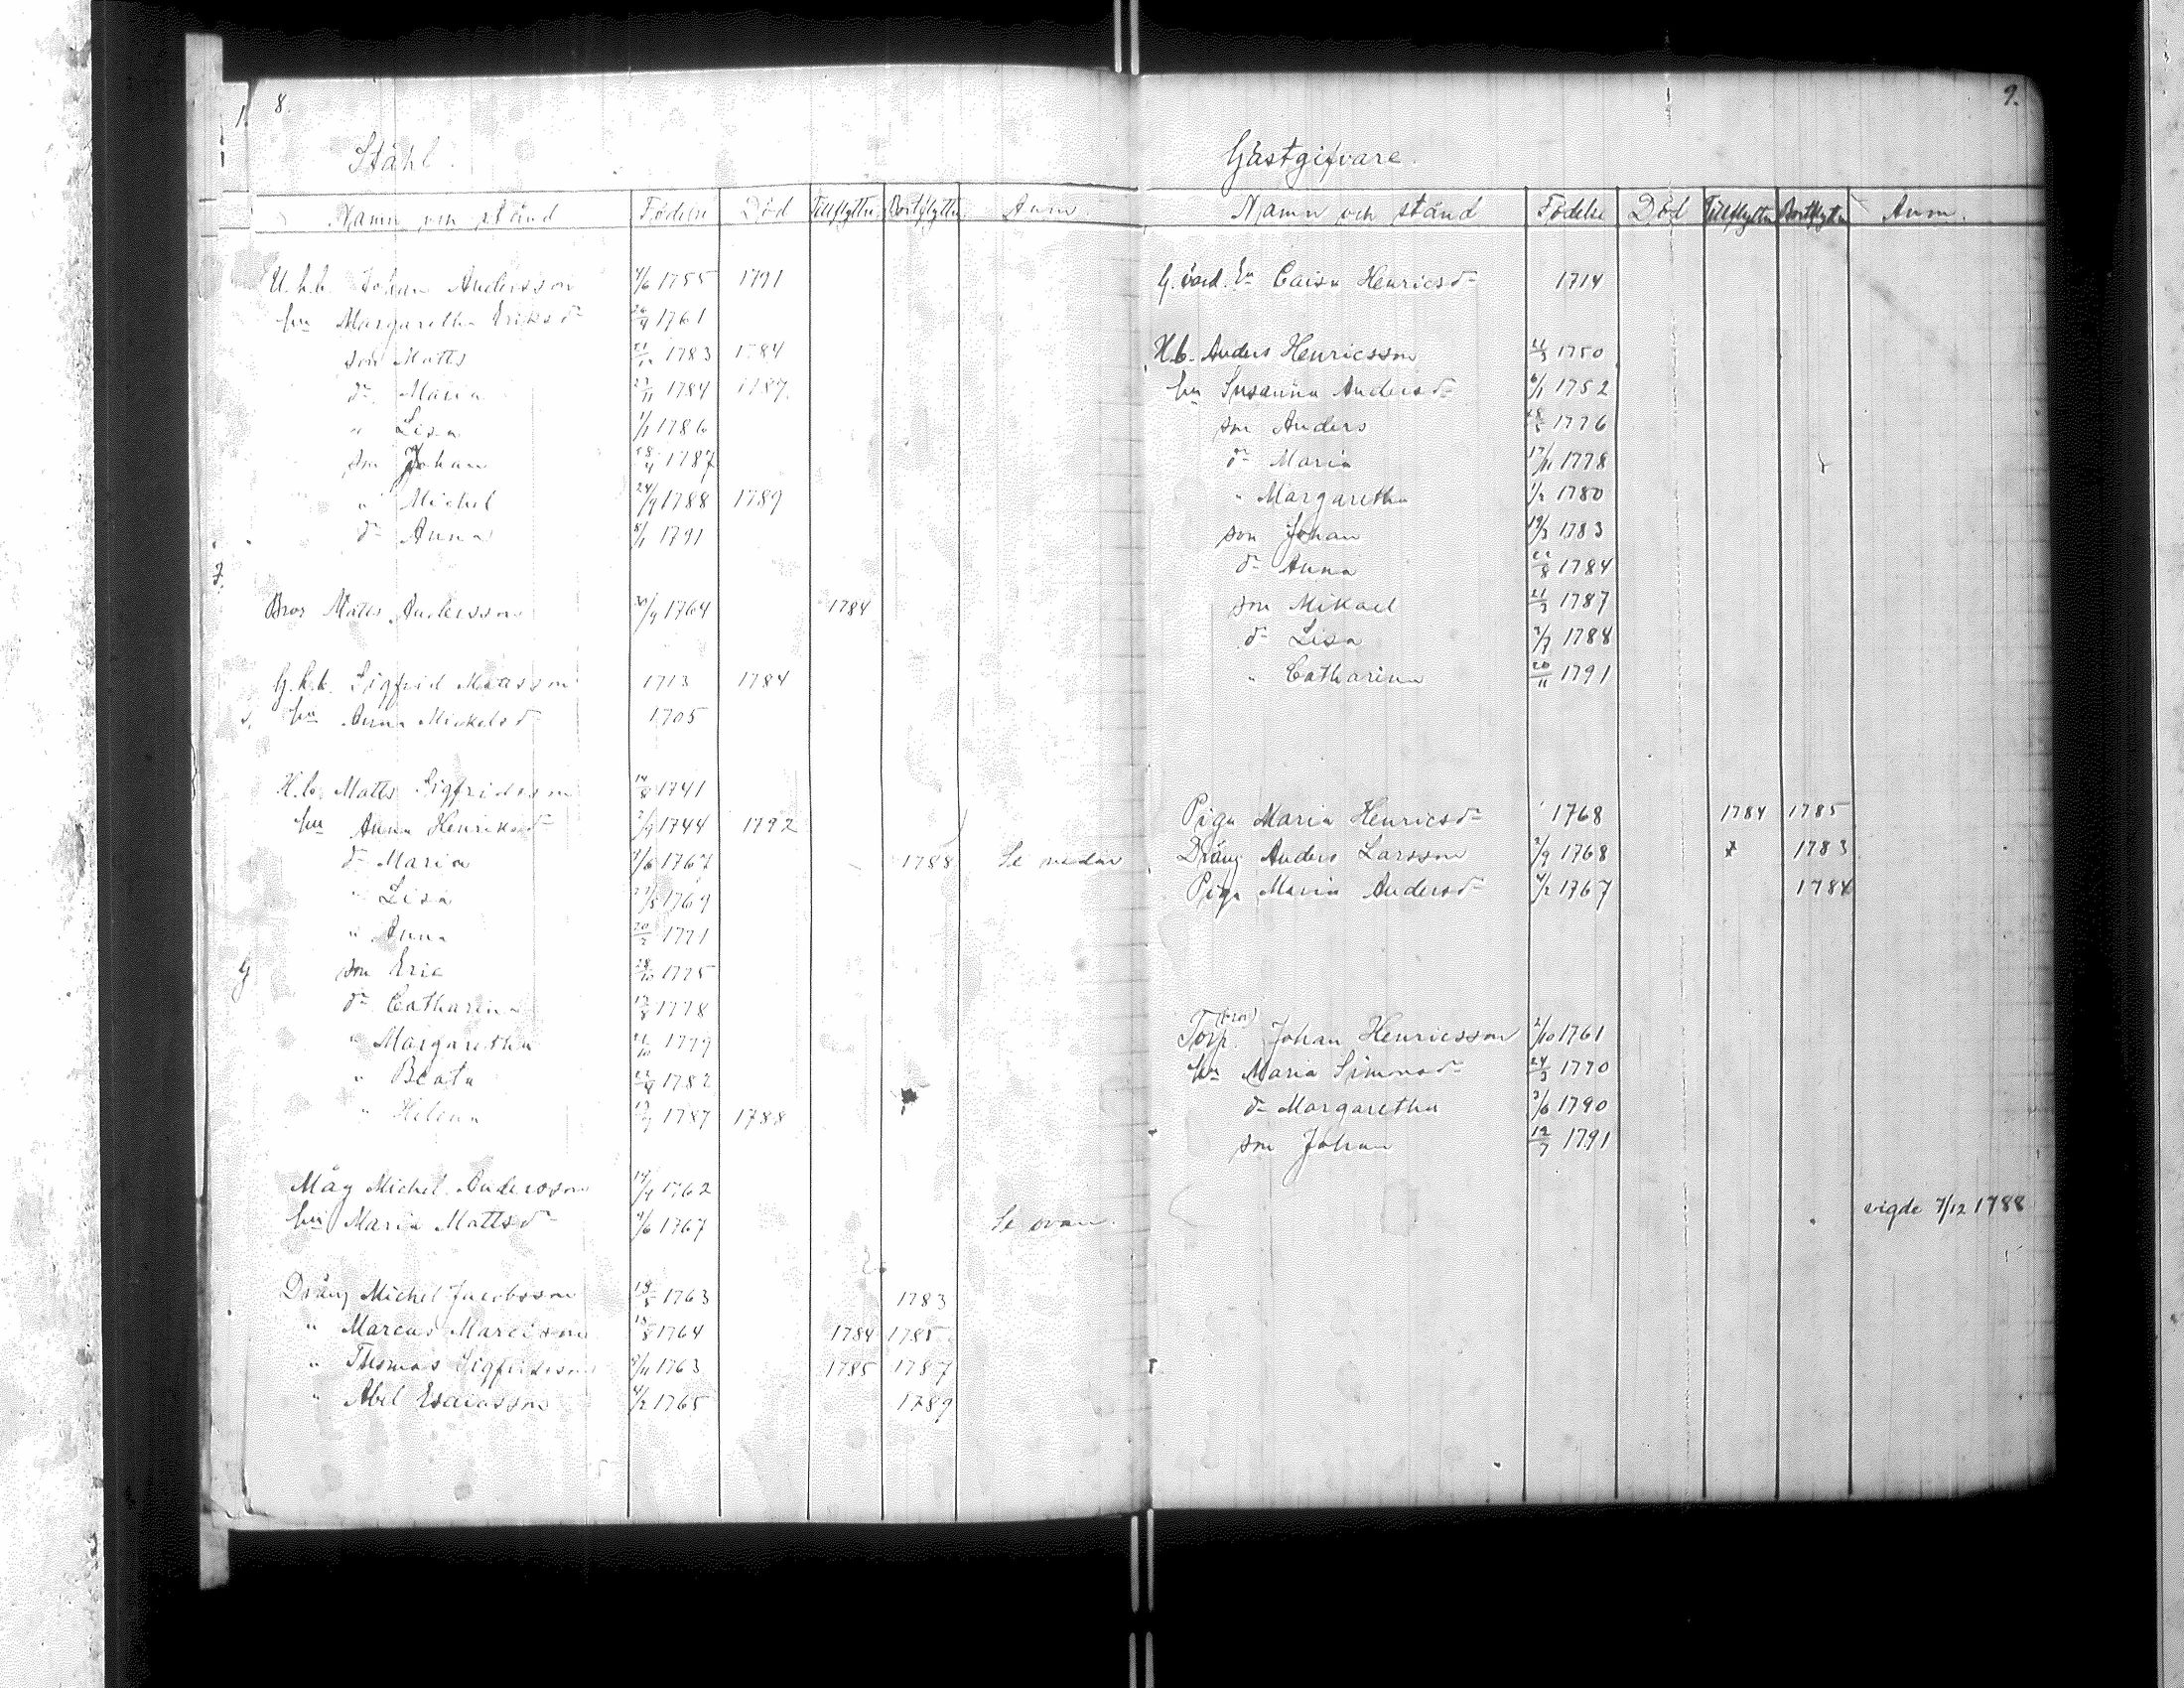 8.
Ståhl.
Namn och stånd Födelse Död Tillflyttn. Bortflyttn. Anm
U.h.b. Johan Andersson 4/6 1755 1791
hu Margaretha Eriksdr 26/4 1761
son Matts 1783 1784
dr Maria 27/11 1784 1787.
" Lisa 1/1 1786
son Johan 1787
" Michel 24/9 1788 1789
dr Anna 8/1 1791
Bror Matts Andersson 1764 1784
G.h.b. Sigfrid Mattsson 1713 1784
hu Anna Mickelsdr 1705
H.b. Matts Sigfridsson 14/8 1741
hu Anna Henriksdr 2/9 1744 1792
dr Maria 9/6 1767 1788 Se nedan
" Lisa 1769
" Anna 20/2 1771
son Eric 28/10 1775
dr Catharina 1778
" Margaretha 21/10 1779
" Beata 22/4 1782
" Helena 1787 1788
Måg Michel Andersson 1762
hu Maria Mattsdr 9/6 1767 Se ovan.
Dräng Michel Jacobsson 1763 1783
" Marcus Marcisson 1764 1784 1785
" Thomas Sigfridsson 1763 1785 1787
" Abel Esaiasson 4/2 1765 1789
9.
Gästgifvare.
Namn och stånd Födelse Död Tillflyttn Bortflyttn Anm.
G.värd. En Caisa Henricsdr 1714
H.b. Anders Henricsson 1750
hu Susanna Andersdr 6/1 1752
son Anders 1776
dr Maria 17/11 1778
" Margaretha 1/2 1780
son Johan 19/3 1783
dr Anna 22/8 1784
son Mikael 21/3 1787
dr Lisa 3/7 1788
" Catharina 20/11 1791
Piga Maria Henricsdr 1768 1784 1785
Dräng Anders Larsson 2/9 1768 1783
Piga Maria Andersdr 4/2 1767 1784
Torp. (bror) Johan Henricsson 2/10 1761
hu Maria Simonsdr 24/3 1770
dr Margaretha 3/6 1790
son Johan 12/7 1791
vigde 7/12 1788